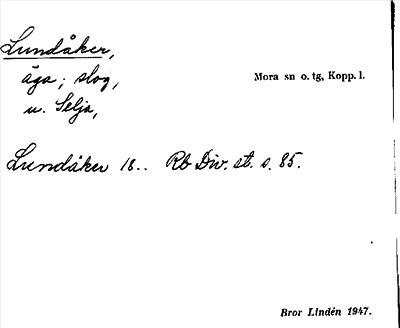 Lundåker,
äga; slog,
Mora sn o. tg, Kopp. l.
u. Selja,
Lundåker 18.. Rb Div. st. s. 85.
Bror Lindén 1947.